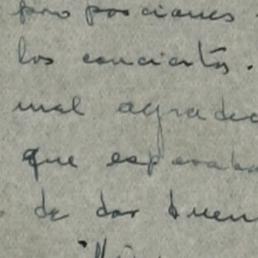 proposiciones
los conciertos.
mal agradec
que esperaba
de dar buen